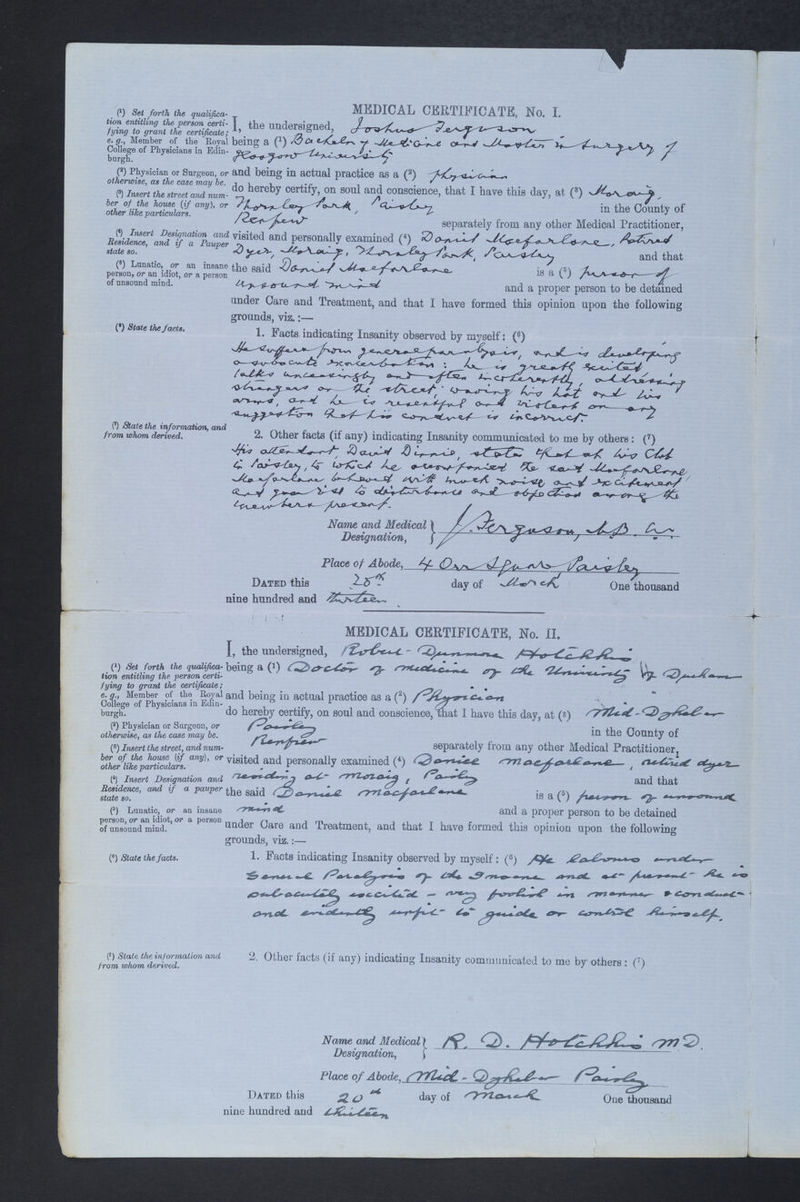 MEDICAL CERTIFICATE, No. I.
(¹) Set forth the qualifica-
tion entitling the person certi-
fying to grant the certificate;
e.g., Member of the Royal
College of Physicians in Edin-
burgh.
(²) Physician or Surgeon, or
otherwise, as the case may be.
(³) Insert the street and num-
ber of the house (if any), or
other like particulars.
(⁴) Insert Designation and
Residence, and if a Pauper
state so.
(⁵) Lunatic, or an insane
person, or an idiot, or a person
of unsound mind.
(⁶) State the facts.
(⁷) State the information, and
from whom derived.
I, the undersigned, Joshua Ferguson
being a (¹) Bachelor of Medicine and Master in Surgery of
Glasgow University
and being in actual practice as a (²) physician
do hereby certify, on soul and conscience, that I have this day, at (³) Moraig,
Thornley Park, Paisley in the County of
Renfrew separately from any other Medical Practitioner,
visited and personally examined (⁴) Daniel Macfarlane, Retired
Dyer, Moraig, Thornley Park, Paisley and that
the said Daniel Macfarlane is a (⁵) person of
unsound mind and a proper person to be detained
under Care and Treatment, and that I have formed this opinion upon the following
grounds, viz.:—
1. Facts indicating Insanity observed by myself: (⁶)
He suffers from general paralysis, and is developing
a subacute exacerbation: he is greatly excited
talks unceasingly and often incoherently, addressing
strangers on the street waving his hat and his
arms, and he is resentful and violent on any
suggestion that his conduct is incorrect.
2. Other facts (if any) indicating Insanity communicated to me by others: (⁷)
His attendant, David Dinnie, states that at his Club
in Paisley, to which he accompanied the said Macfarlane,
Macfarlane behaved with much noise and excitement
and gave rise to disturbance and objection among the
members present.
Name and Medical Designation, J. Ferguson, M.B. C.M.
Place of Abode, 4 Orr Square, Paisley
DATED this 20th day of March One thousand
nine hundred and thirteen.
MEDICAL CERTIFICATE, No. II.
(¹) Set forth the qualifica-
tion entitling the person certi-
fying to grant the certificate;
e.g., Member of the Royal
College of Physicians in Edin-
burgh.
(²) Physician or Surgeon, or
otherwise, as the case may be.
(³) Insert the street, and num-
ber of the house (if any), or
other like particulars.
(⁴) Insert Designation and
Residence, and if a pauper
state so.
(⁵) Lunatic, or an insane
person, or an idiot, or a person
of unsound mind.
(⁶) State the facts.
(⁷) State the information and
from whom derived.
I, the undersigned, Robert Dunmore Hotchkis
being a (¹) Doctor of medicine of the University of Durham
and being in actual practice as a (²) Physician
do hereby certify, on soul and conscience, that I have this day, at (³) Mid-Dykebar
Paisley in the County of
Renfrew separately from any other Medical Practitioner,
visited and personally examined (⁴) Daniel Macfarlane, retired dyer
residing at Moraig, Paisley and that
the said Daniel Macfarlane is a (⁵) person of unsound
mind and a proper person to be detained
under Care and Treatment, and that I have formed this opinion upon the following
grounds, viz.:—
1. Facts indicating Insanity observed by myself: (⁶) He labours under
General Paralysis of the Insane and at present he is
subacutely excited – very foolish in manner & conduct
and evidently unfit to guide or control himself.
2. Other facts (if any) indicating Insanity communicated to me by others: (⁷)
Name and Medical Designation, R. D. Hotchkis MD.
Place of Abode, Mid-Dykebar Paisley
DATED this 20th day of March One thousand
nine hundred and thirteen